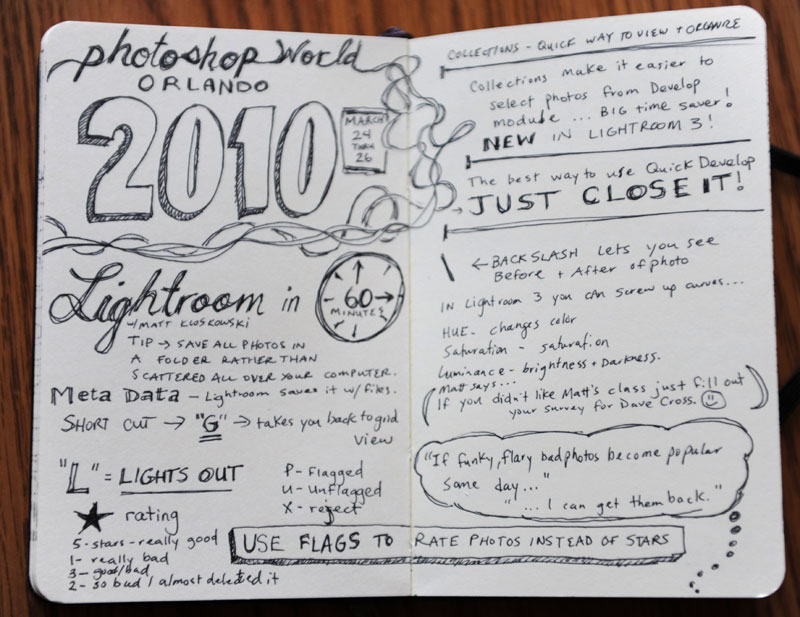 photoshop World
ORLANDO
2010
MARCH
24
THRU
26
Lightroom in
60
MINUTES
w/MATT KLOSKOWSKI
TIP → SAVE ALL PHOTOS IN
A FOLDER RATHER THAN
SCATTERED ALL OVER YOUR COMPUTER.
Meta Data - Lightroom saves it w/ files.
SHORT CUT → "G" → takes you back to grid
view
"L" = LIGHTS OUT
P - Flagged
U - Unflagged
X - reject
★ rating
5 - stars - really good
1 - really bad
3 - good/bad
2 - so bad I almost deleted it
USE FLAGS TO RATE PHOTOS INSTEAD OF STARS
COLLECTIONS - QUICK WAY TO VIEW + ORGANIZE
Collections make it easier to
select photos from Develop
module ... BIG time saver!
NEW IN LIGHTROOM 3!
The best way to use Quick Develop
→ JUST CLOSE IT!
\ ← BACKSLASH lets you see
Before + After of photo
IN Lightroom 3 you can screw up curves...
HUE - changes color
Saturation - saturation
Luminance - brightness + Darkness.
Matt says...
(If you didn't like Matt's class just fill out
your survey for Dave Cross. ☺)
"If funky, flary bad photos become popular
some day..."
"... I can get them back."